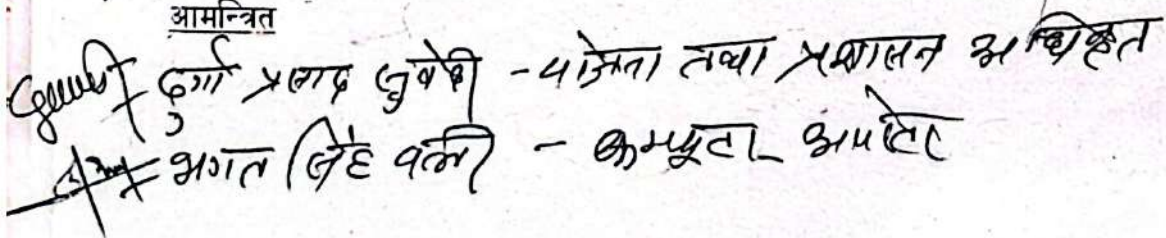 आमन्त्रित
दुर्गा प्रसाद सुवेदी - योजना तथा प्रशासन अधिकृत
भगत सिंह वली - कम्प्युटर अपरेटर